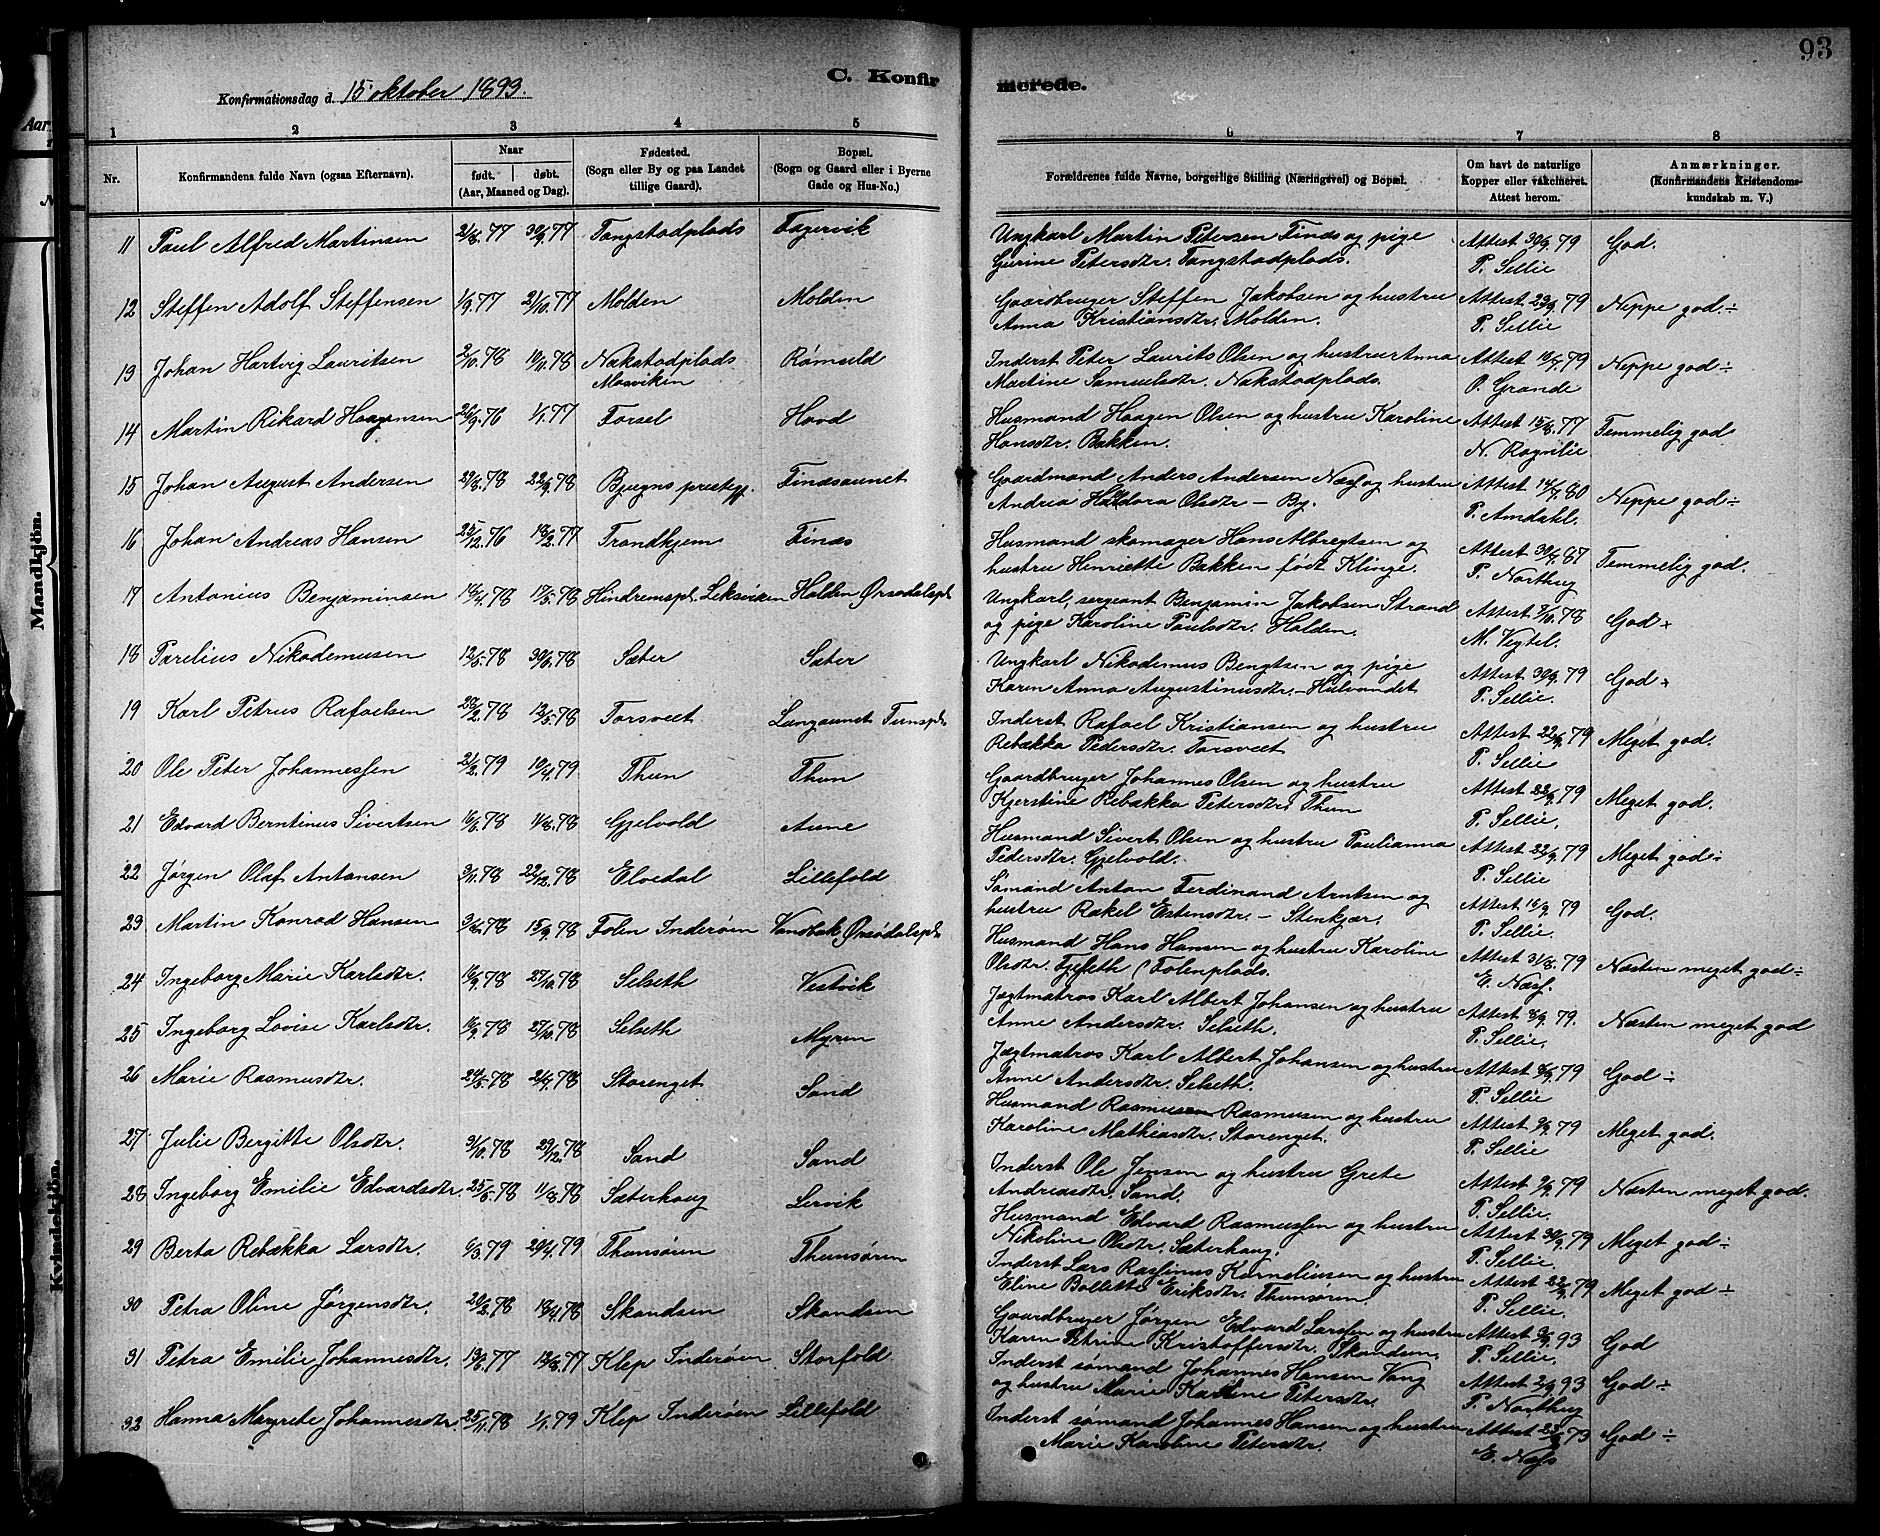 93
C. Konfirmerede.
Konfirmationsdag d. 15 oktober 1893.
1 2 3 4 5 6 7 8
Nr.
Konfirmandens fulde Navn (ogsaa Efternavn).
Naar
født. døbt.
(Aar, Maaned og Dag).
Fødested.
(Sogn eller By og paa Landet
tillige Gaard).
Bopæl.
(Sogn og Gaard eller i Byerne
Gade og Hus-No.)
Forældrenes fulde Navne, borgerlige Stilling (Næringsvei) og Bopæl.
Om havt de naturlige
Kopper eller vakcineret.
Attest herom.
Anmærkninger.
(Konfirmandens Kristendoms-
kundskab m. V.)
Mandkjön.
Kvindekjön.
11 Paul Alfred Martinsen 77 30/9.77 Tangstadplads Fagervik Ungkarl Martin Petersen Finæs og pige Attest 30/9.79 God.
Gurine Petersdtr. Tangstadplads. P. Sellie
12 Steffen Adolf Steffensen 1/9.77 21/10.77 Molden Molden Gaardbruger Steffen Jakobsen og hustru Attest 79 Neppe god.÷
Anna Kristiansdtr. Molden. P. Sellie
13 Johan Hartvig Lauritsen 2/10.78 10/11.78 Nakstadplads Rømuld Inderst Peter Laurits Olsen og hustru Anna Attest 79 Neppe god÷
Mosviken Martine Samuelsdtr. Nakstadplads. O. Grande
14 Martin Rikard Haagensen 26/9.76 1/1.77 Forsel Hovd Husmand Haagen Olsen og hustru Karoline Attest 15/8.77 Temmelig god
Hansdtr. Bakken. N. Ragnlie
15 Johan August Andersen 78 22/9.78 Bjugns prestegj. Finæsaunet Gaardmand Anders Andersen Næss og hustru Attest 80 Neppe god÷
Andrea Haldora Olsdtr – By. P. Amdahl.
16 Johan Andreas Hansen 25/12.76 18/2.77 Trondhjem Finæs Husmand skomager Hans Albregtsen og Attest 87 Temmelig god.
hustru Henriette Bakken født Klinge. P. Northug
17 Antonius Benjaminsen 16/4.78 78 Hindremspl. Leksviken Holden Ørsødalspl. Ungkarl, sergeant Benjamin Jakobsen Strand Attest 78 God÷
og pige Karoline Paulsdtr. Holden. M. Vegtel.
18 Parelius Nikodemusen 12/5.78 78 Sæter Sæter Ungkarl Nikodemus Bengtsen og pige Attest 30/9.79 God÷
Karen Anna Augustinusdtr.–Hulvandet P. Sellie.
19 Karl Petrus Rafaelsen 78 12/5.78 Torsveet Langaunet Ternspl. Inderst Rafael Kristiansen og hustru Attest 22/9.79 Meget god.
Rebækka Pedersdtr. Torsveet P. Sellie
20 Ole Peter Johannessen 79 79 Thun Thun Gaardbruger Johannes Olsen og hustru Attest 22/9.79 Meget god.
Kjerstine Rebækka Petersdtr. Thun P. Sellie.
21 Edvard Berntinus Sivertsen 78 78 Gjelvold Aune Husmand Sivert Olsen og hustru Paulianna Attest 22/9.79 Meget god÷
Pedersdtr. Gjelvold. P. Sellie
22 Jørgen Olaf Antonsen 3/11.78 22/12.78 Elvedal Lillefold Sømand Anton Ferdinand Arntsen og Attest 16/9.79 God.
hustru Rakel Estensdtr.– Stenkjær. P. Sellie.
23 Martin Konrad Hansen 78 15/9.78 Folen Inderøen Vandbak Ørsødalspl. Husmand Hans Hansen og hustru Karoline Attest 31/8.79 Næsten meget god÷
Olsdtr. Folenplads. E. Næss.
24 Ingeborg Marie Karlsdtr. 16/9.78 27/10.78 Selseth Vestvik Jægtmatros Karl Albert Johansen og hustru Attest 79. Næsten meget god
Anne Andersdtr. Selseth. P. Sellie.
25 Ingeborg Lovise Karlsdtr. 16/9.78 27/10.78 Selseth Myren Jægtmatros Karl Albert Johansen og hustru Attest 79 God÷
Anne Andersdtr. Selseth. P. Sellie
26 Marie Rasmusdtr. 24/5.78 78 Storenget Sand Husmand Rasmus Rasmusen og hustru Attest 79 Meget god.
Karoline Mathiasdtr. Storenget. P. Sellie
27 Julie Bergitte Olsdtr. 31/10.78 29/12.78 Sand Sand Inderst Ole Jensen og hustru Grete Attest 79 Næsten meget god.
Andreasdtr. Sand. P. Sellie.
28 Ingeborg Emilie Edvardsdtr. 78 11/8.78 Sæterhaug Lervik Husmand Edvard Rasmussen og hustru Attest 30/9.79 Meget god÷
Nikoline Olsdtr. Sæterhaug. P. Sellie.
29 Berta Rebækka Larsdtr. 6/3.79 20/4.79 Thunsøren Thunsøren Inderst Lars Rasinus Korneliusen og hustru Attest 22/9.79 Meget god÷
Eline Bollette Eriksdtr. Thunsøren. P. Sellie.
30 Petra Oline Jørgensdtr. 20/2.78 78 Skandsen Skandsen Gaardbruger Jørgen Edvard Larssen og hustru Attest 93 God
Karen Petrine Kristoffersdtr. Skandsen. P. Sellie.
31 Petra Emilie Johannesdtr. 77 77 Klep Inderøen Storfold Inderst sømand Johannes Hansen Vang Attest 93 God÷
og hustru Marie Karoline Petersdtr. P. Northug
32 Hanna Margrete Johannesdtr. 25/11.78 1/1.79 Klep Inderøen Lillefold Inderst sømand Johannes Hansen og hustru Attest God÷
Marie Karoline Petersdtr. E. Næss